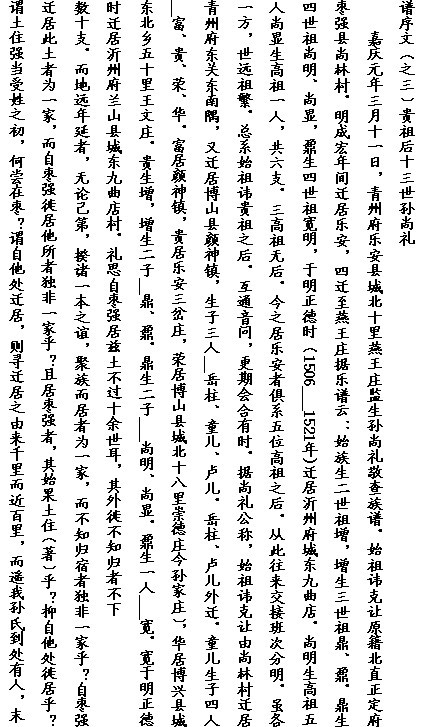 谱序文（之三）贵祖后十三世孙尚礼
嘉庆元年三月十一日，青州府乐安县城北十里燕王庄监生孙尚礼敬查族谱。始祖讳克让原籍北直正定府
枣强县尚林村。明成宏年间迁居乐安，四迁至燕王庄据乐谱云：始族生二世祖增，增生三世祖鼎、鼐。鼎生
四世祖尚明、尚显，鼐生四世祖宽明，于明正德时（1506__1521年）迁居沂州府城东九曲店。尚明生高祖五
人尚显生高祖一人，共六支。三高祖无后。今之居乐安者俱系五位高祖之后。从此往来交接班次分明。虽各
一方，世远祖繁。总系始祖讳贵祖之后。互通音问，更期会合有时。据尚礼公称，始祖讳克让由尚林村迁居
青州府东关东南隅，又迁居博山县颜神镇，生子三人__岳柱、童儿、卢儿。岳柱、卢儿外迁。童儿生子四人
__富、贵、荣、华。富居颜神镇，贵居乐安三岔庄，荣居博山县城北十八里崇德庄今孙家庄），华居博兴县城
东北乡五十里王文庄。贵生增，增生二子__鼎、鼐。鼎生二子__尚明、尚显。鼐生一人__宽。宽于明正德
时迁居沂州府兰山县城东九曲店村。礼思自枣强居兹土不过十余世耳，其外徙不知归者不下
数十支。而地远年延者，无论己弟，揆诸一本之谊，聚族而居者为一家，而不知归宿者独非一家乎？自枣强
迁居此土者为一家，而自枣强徙居他所者独非一家乎？且居枣强者，其始果土住（著）乎？抑自他处徙居乎？
谓土住强当受姓之初，何尝在枣？谓自他处迁居，则寻迁居之由来千里而近百里，而遥我孙氏到处有人，未